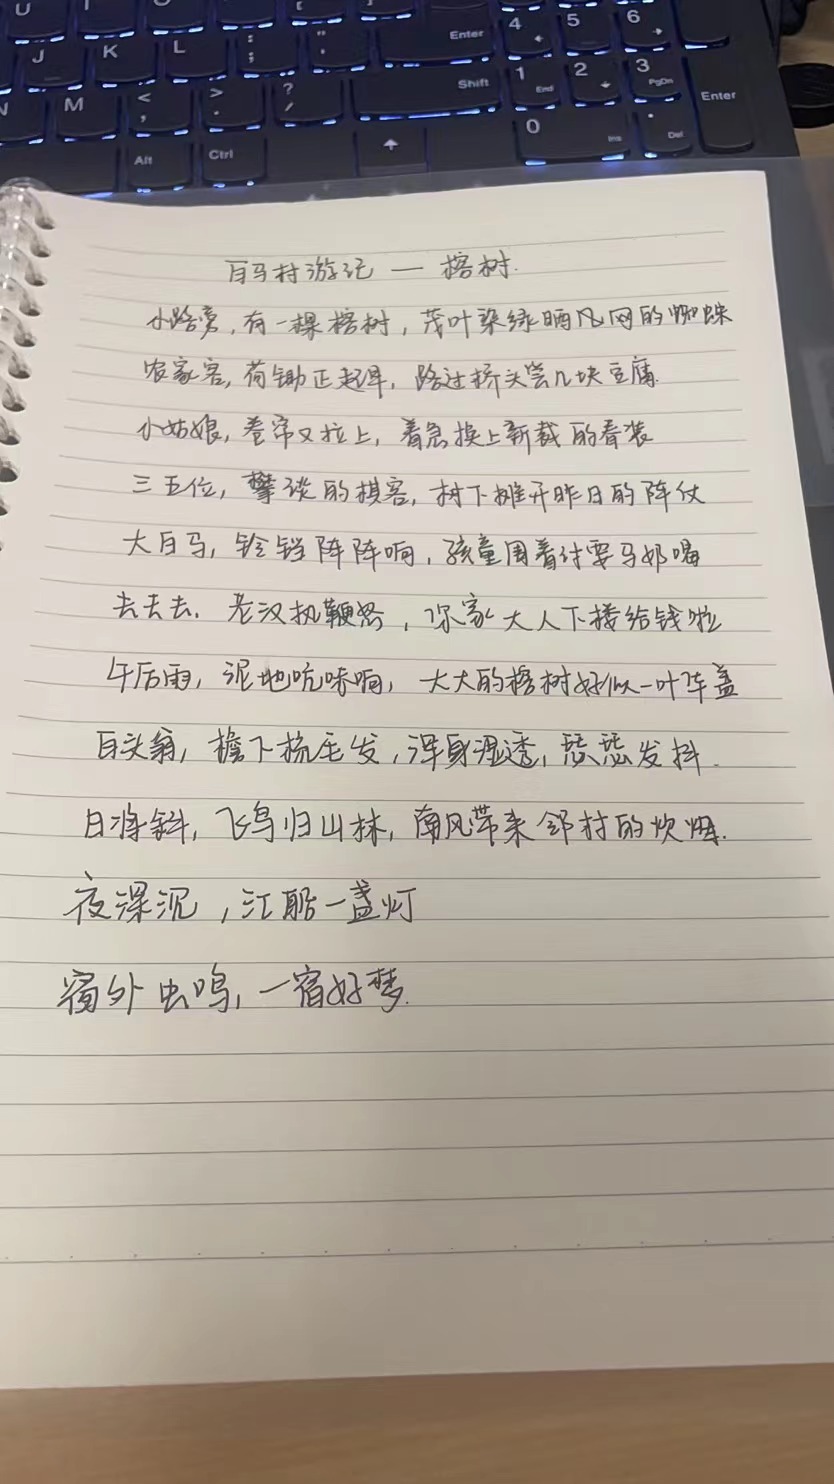 U I
J K L : ; " ' Enter 4 5 6
N M < , > . ? / Shift 1 End 2 3 PgDn Enter
Alt Ctrl 0 Ins . Del
白马村游记 — 榕树.
小路旁,有一棵榕树,茂叶染绿晒风网的蜘蛛
农家客,荷锄正起早,路过桥头尝几块豆腐.
小姑娘,卷帘又拉上,着急换上新裁的春装
三五位,攀谈的棋客,树下摊开昨日的阵仗
大白马,铃铛阵阵响,孩童围着讨要马奶喝
去去去.老汉执鞭怒,你家大人下楼给钱啦
午后雨,泥地吭哧响,大大的榕树好似一叶车盖
白头翁,檐下梳毛发,浑身湿透,瑟瑟发抖.
日将斜,飞鸟归山林,南风带来邻村的炊烟.
夜深沉,江船一盏灯
窗外虫鸣,一宿好梦.